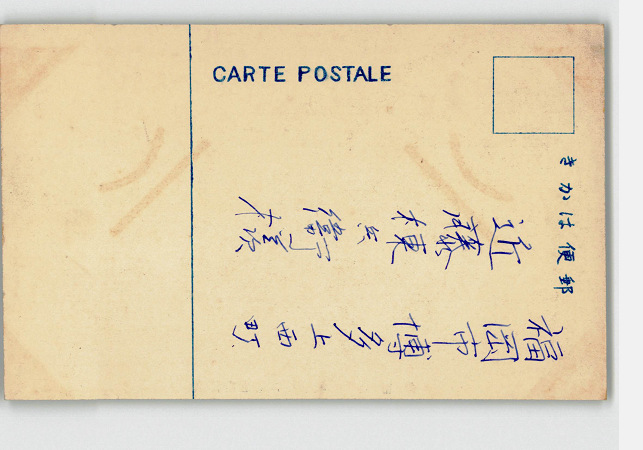 CARTE POSTALE
郵便はかき
福岡市博多上西町
近藤棟兵衛様